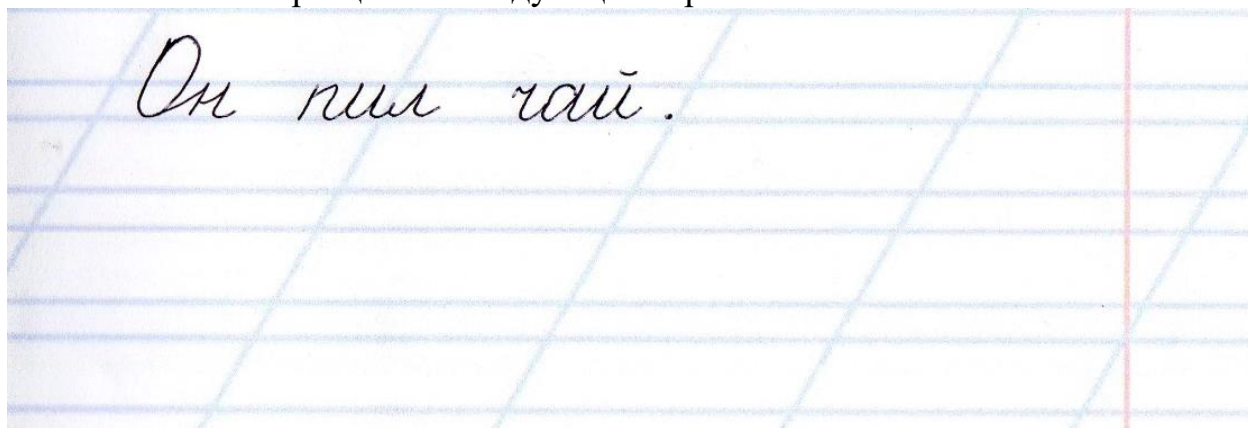 Он пил чай.